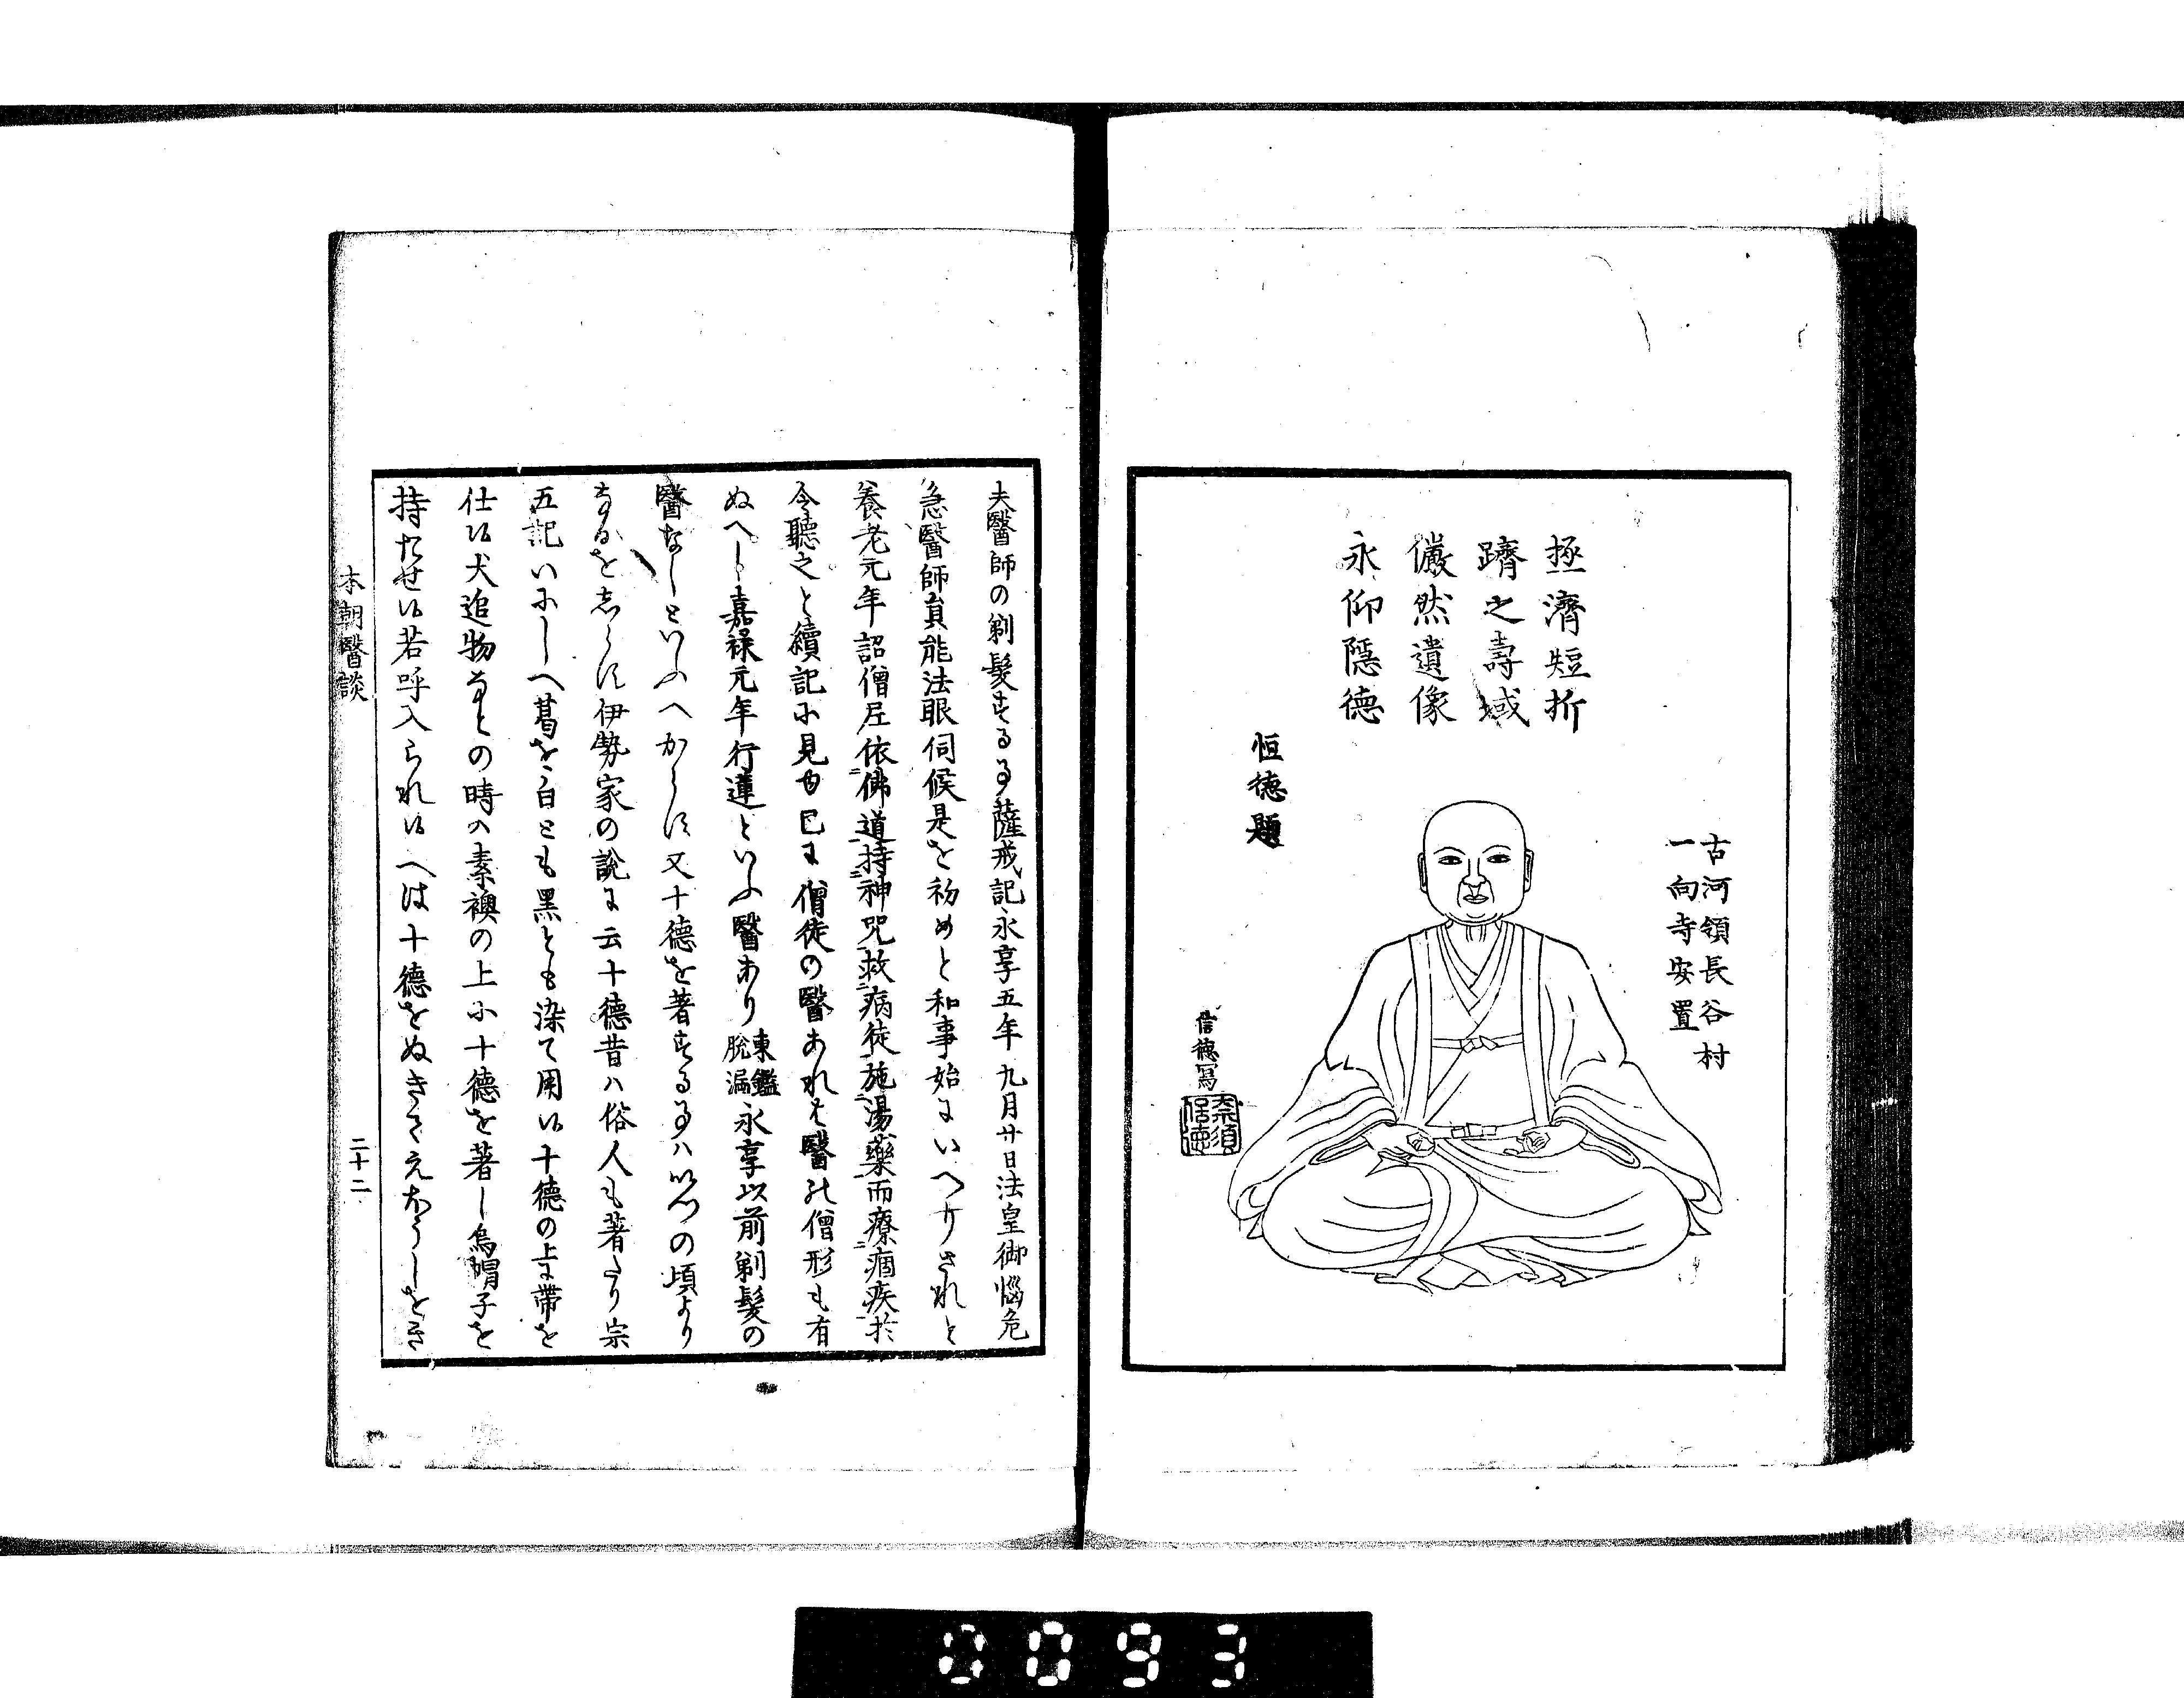 古河領長谷村
一向寺安置
拯濟短折
躋之壽域
儼然遺像
永仰隱德
恒德題
信德寫
奈須信德
夫醫師の剃髮するる事薩戒記永享五年九月廿日法皇御惱危
急醫師員能法眼伺候是を初めと和事始にいへりされと
養老元年詔僧尼依佛道持神咒救病徒施湯藥而療痼疾於
令聽之と續記に見ゆ已に僧徒の醫あれは醫の僧形も有
ぬへし嘉禄元年行蓮といふ醫あり東鑑脫漏永享以前剃髮の
醫なしといふへからす又十德を著するる事ハ以の頃より
なるをしらす伊勢家の說に云十德昔ハ俗人も著たり宗
五記いにしへ葛を白とも黑とも染て用候十德の上に帶を
仕候犬追物なとの時ハ素襖の上に十德を著し烏帽子を
持たせ候若呼入られ候へは十德をぬきてえほうしをき
本朝醫談
二十二
0093